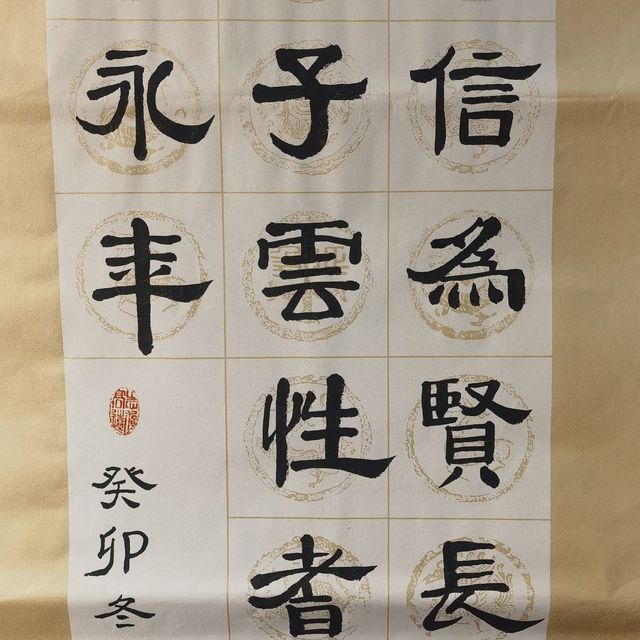 信為賢長
子雲性者
永年
癸卯冬